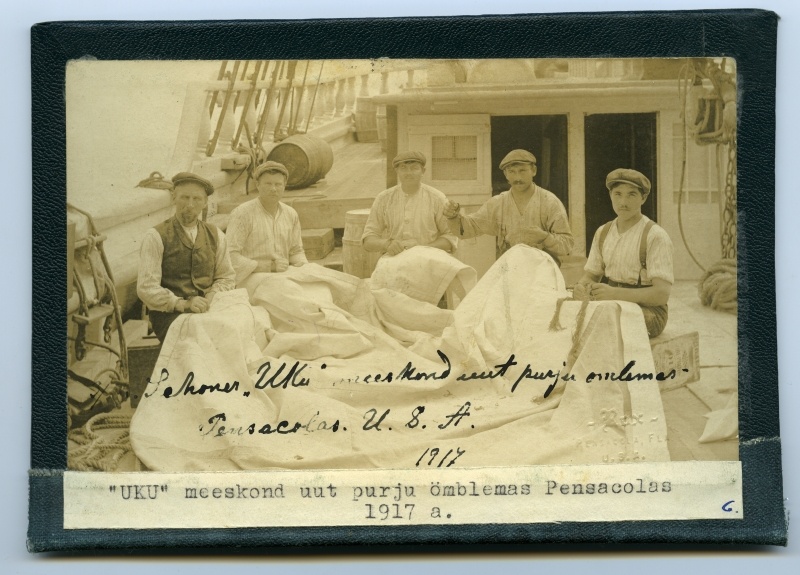 Schoner "Uku" meeskond uut purju omlemas-
Pensacolas. U. S. A.
1917
- Rox -
PENSACOLA, FLA
U.S.A.
"UKU" meeskond uut purju ömblemas Pensacolas
1917 a.
6.